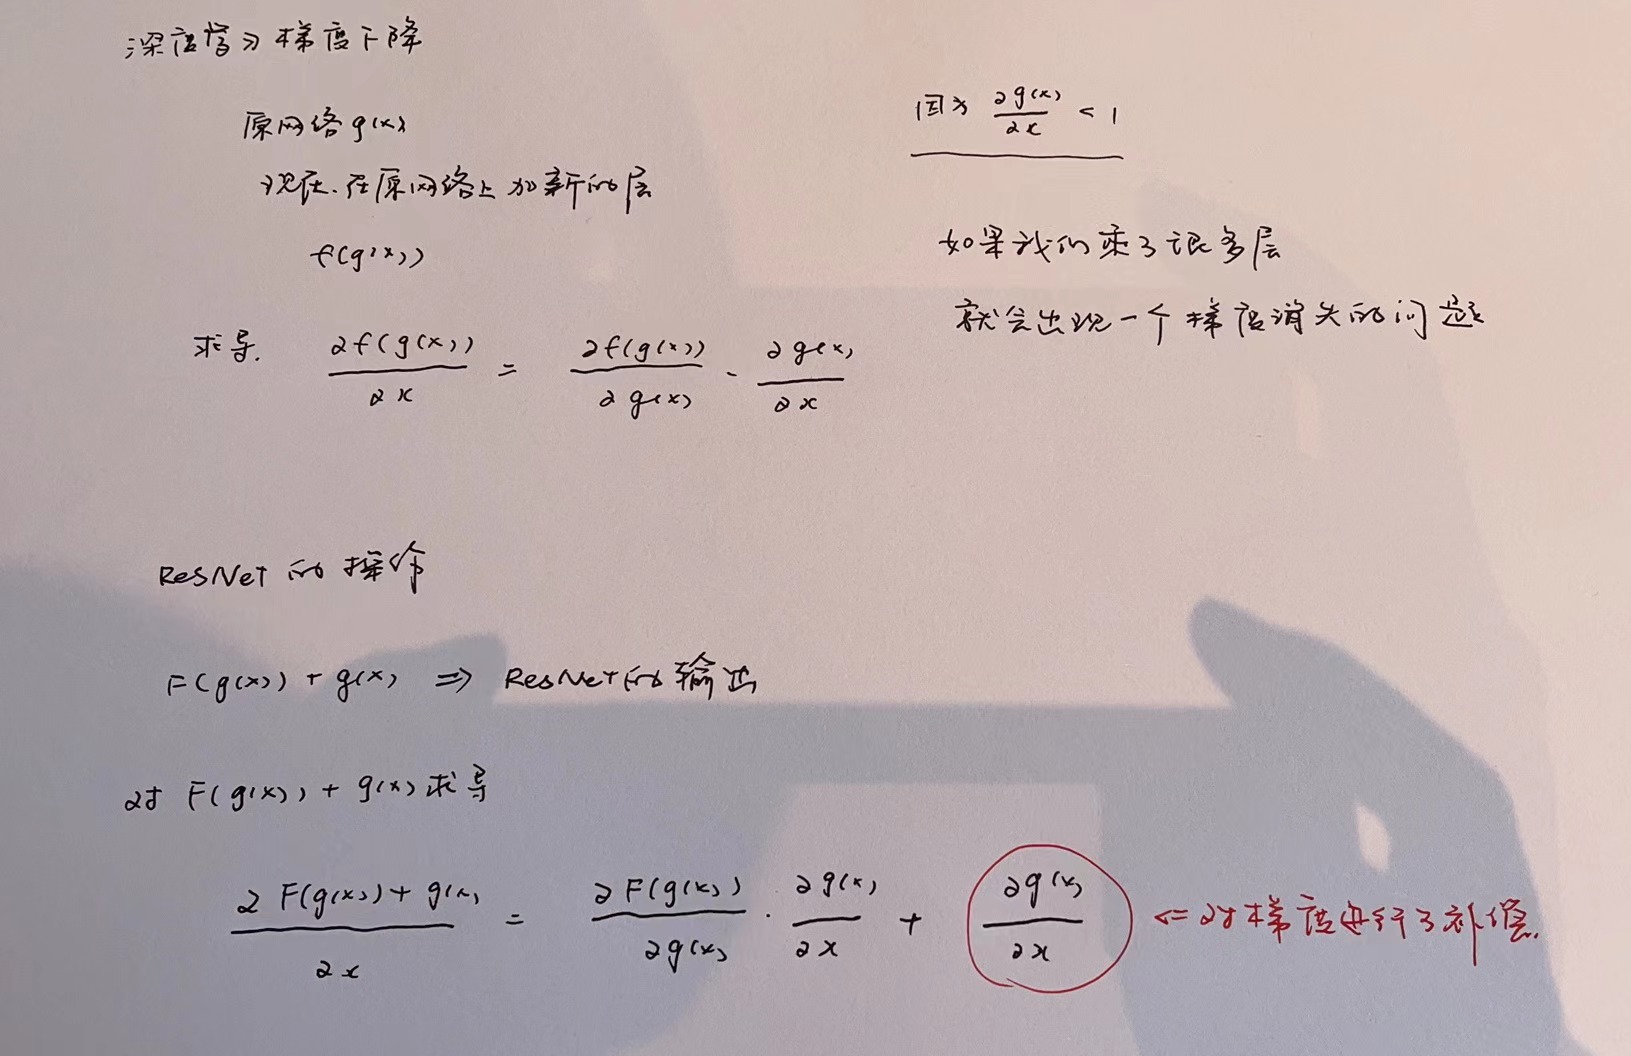 深度学习梯度下降
原网络g(x)
现在.在原网络上加新的层
f(g(x))
求导. ∂f(g(x))/∂x = ∂f(g(x))/∂g(x) · ∂g(x)/∂x
因为 ∂g(x)/∂x < 1
如果我们乘了很多层
就会出现一个梯度消失的问题
ResNet的操作
F(g(x)) + g(x) ⇒ ResNet的输出
对 F(g(x)) + g(x) 求导
∂F(g(x)) + g(x)/∂x = ∂F(g(x))/∂g(x) · ∂g(x)/∂x + ∂g(x)/∂x ⇐ 对梯度进行了补偿.